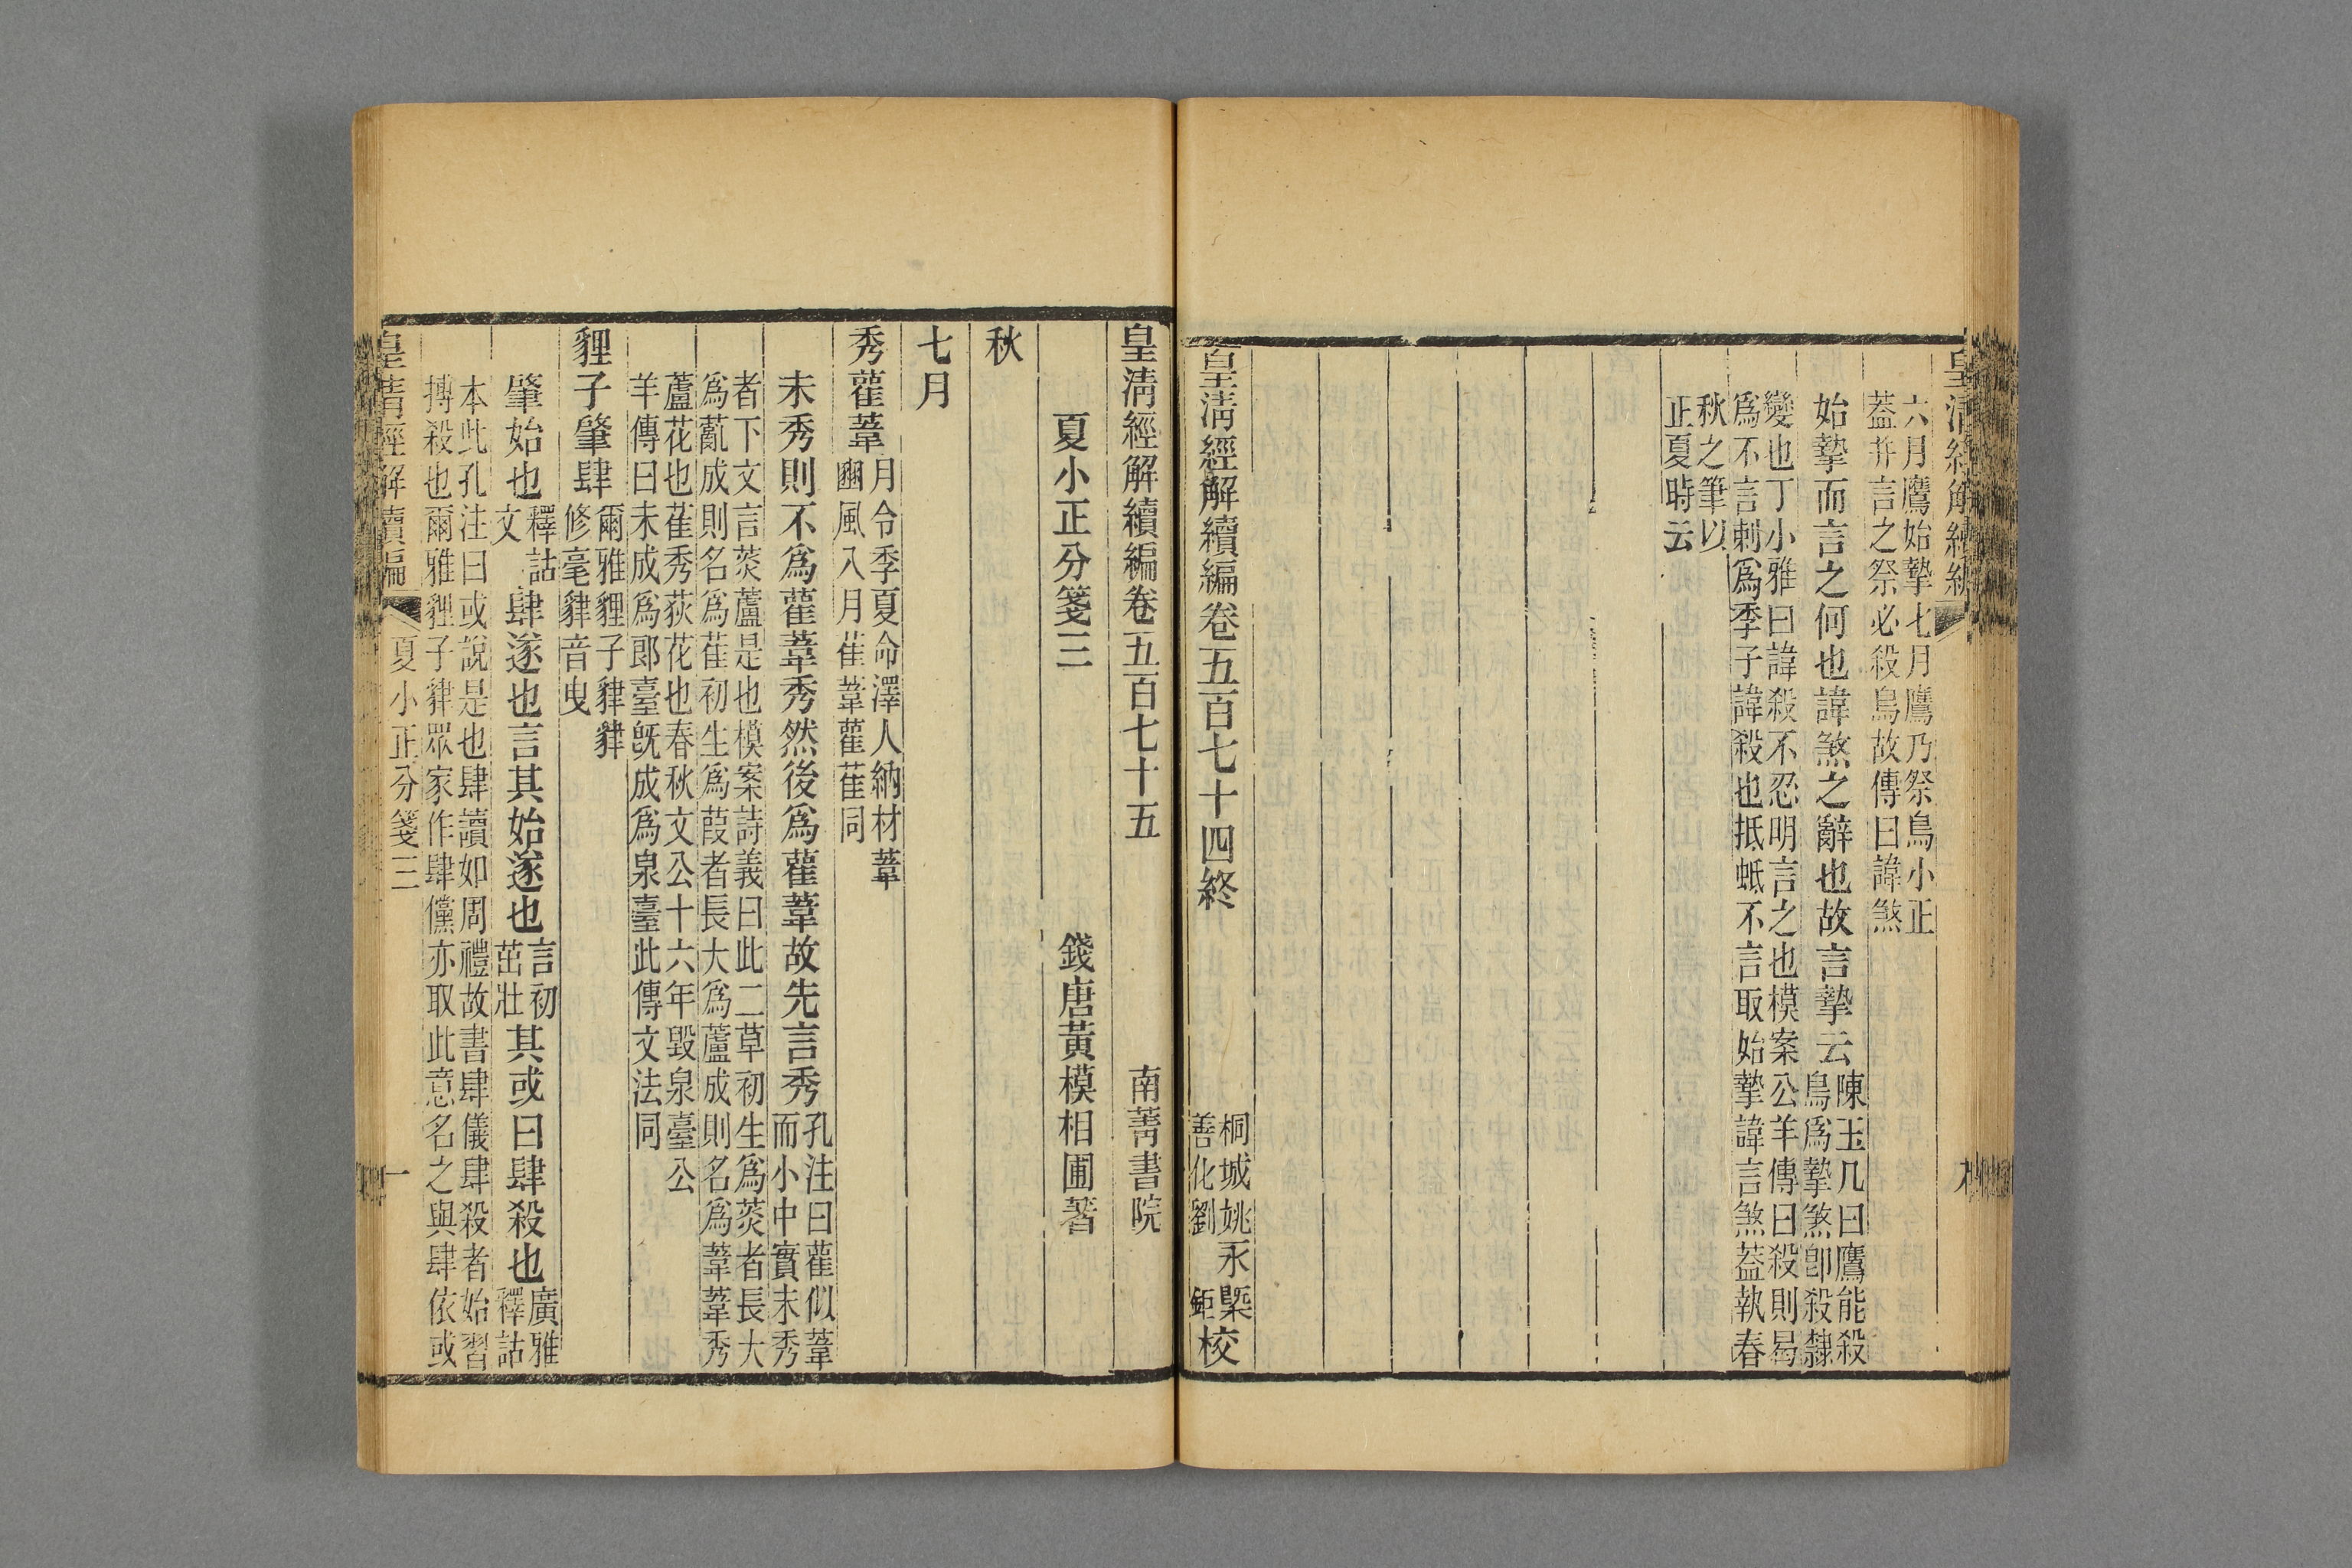 皇清經解續編
六月鷹始摯七月鷹乃祭鳥小正
蓋并言之祭必殺鳥故傳曰諱煞
始摯而言之何也諱煞之辭也故言摯云
陳玉几曰鷹能殺
鳥爲摯煞卽殺隸
變也丁小雅曰諱殺不忍明言之也模案公羊傳曰殺則曷
爲不言刺爲季子諱殺也抵蚳不言取始摯諱言煞蓋執春
秋之筆以
正夏時云
皇淸經解續編卷五百七十四終
桐城姚永槩
善化劉鉅
校
皇淸經解續編卷五百七十五
南菁書院
夏小正分箋三
錢唐黃模相圃著
秋
七月
秀雚葦
月令季夏命澤人納材葦
豳風八月萑葦雚萑同
未秀則不爲雚葦秀然後爲雚葦故先言秀
孔注曰雚似葦
而小中實未秀
者下文言菼蘆是也模案詩義曰此二草初生爲菼者長大
爲薍成則名爲萑初生爲葭者長大爲蘆成則名爲葦葦秀
蘆花也萑秀荻花也春秋文公十六年毀泉臺公
羊傳曰未成爲郎臺旣成爲泉臺此傳文法同
貍子肇肆
爾雅貍子貄貄
修毫貄音曳
肇始也
釋詁
文
肆遂也言其始遂也
言初
茁壯
其或曰肆殺也
廣雅
釋詁
本此孔注曰或說是也肆讀如周禮故書肆儀肆殺者始習
搏殺也爾雅貍子貄眾家作肆儻亦取此意名之與肆依或
皇淸經解續編
夏小正分箋三
一